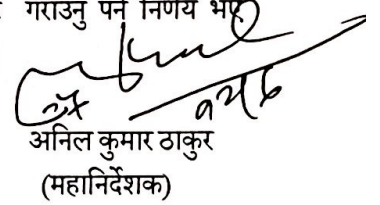 गराउनु पर्ने निर्णय भए
अनिल कुमार ठाकुर
(महानिर्देशक)